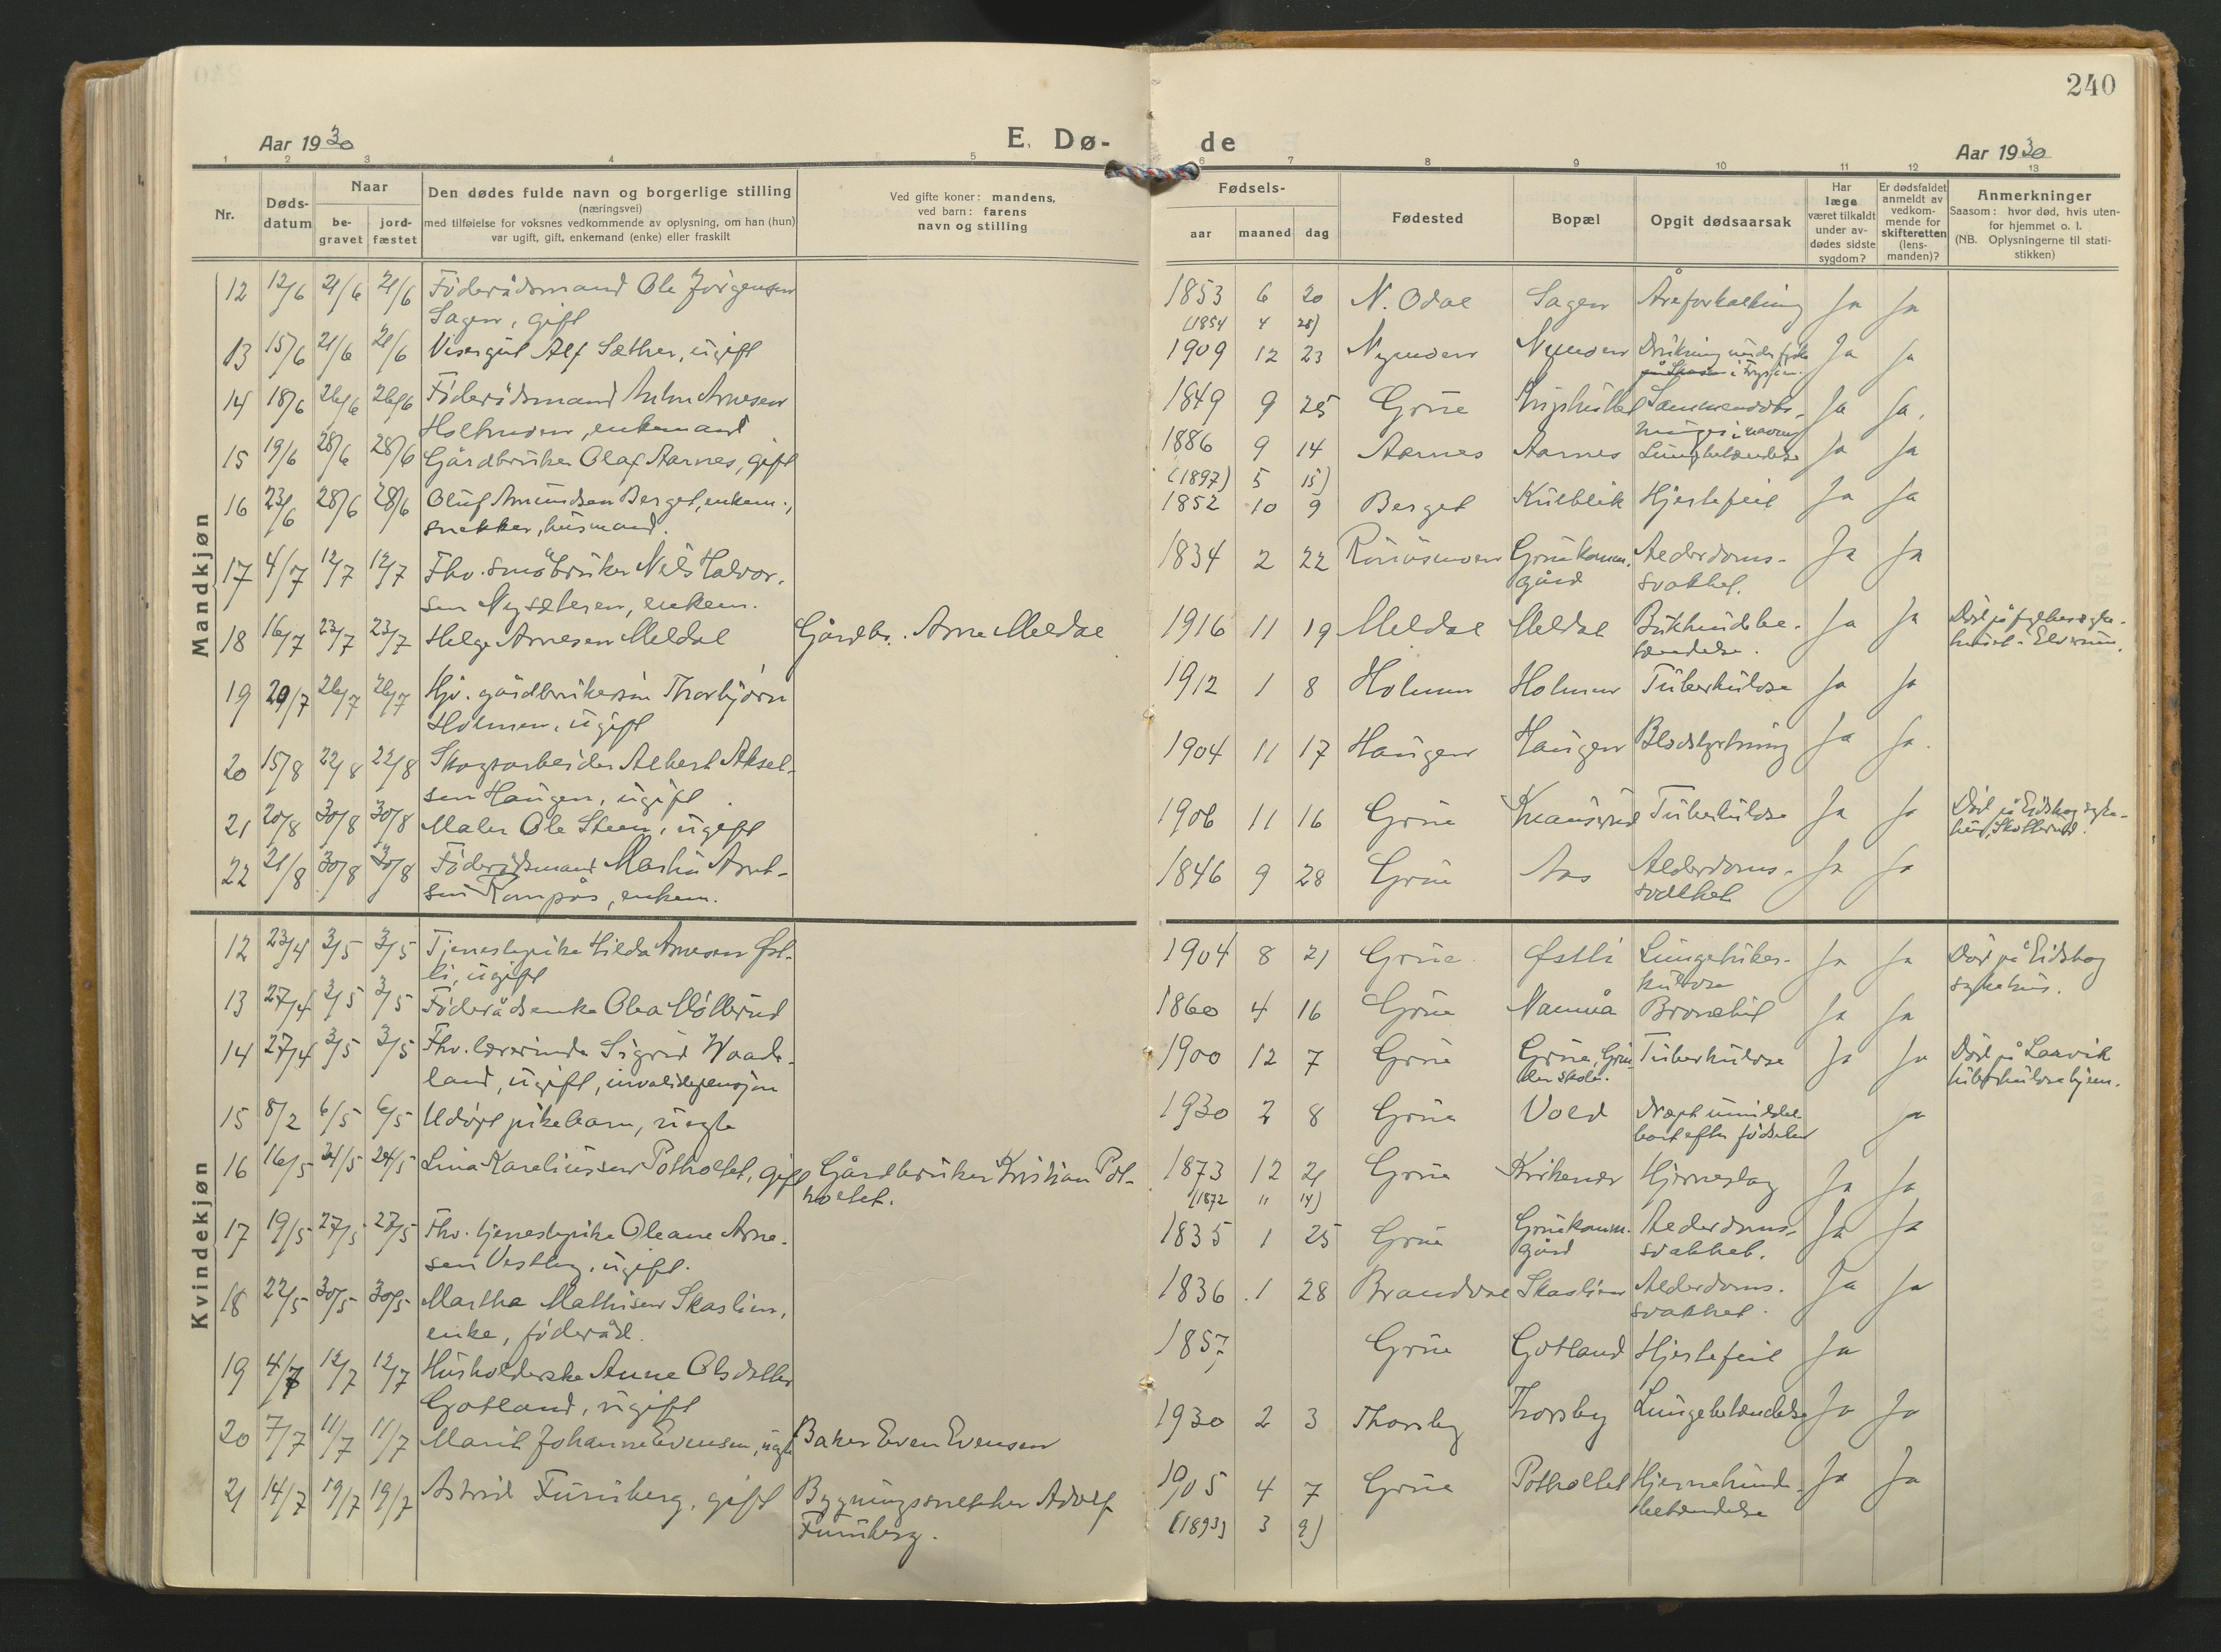 240
Aar 1930
E. Dø-
de
Aar 1930
1 2 3 4 5 6 7 8 9 10 11 12 13
Nr.
Døds-
datum
Naar
be-
gravet
jord-
fæstet
Den dødes fulde navn og borgerlige stilling
(næringsvei)
med tilføielse for voksnes vedkommende av oplysning, om han (hun)
var ugift, gift, enkemand (enke) eller fraskilt
Ved gifte koner: mandens,
ved barn: farens
navn og stilling
Fødsels-
aar maaned dag
Fødested
Bopæl
Opgit dødsaarsak
Har
læge
været tilkaldt
under av-
dødes sidste
sygdom?
Er dødsfaldet
anmeldt av
vedkom-
mende for
skifteretten
(lens-
manden)?
Anmerkninger
Saasom: hvor død, hvis uten-
for hjemmet o. l.
(NB. Oplysningerne til stati-
stikken)
Mandkjøn
12 12/6 21/6 21/6 Föderådsmand Ole Jörgensen 1853 6 20 N. Odal Sagen Åreforkalkning Ja Ja
Sagen, gift (1854 4 28)
13 15/6 21/6 21/6 Visergut Alf Sæther, ugift 1909 12 23 Nymoen Nymoen Drukning under fiske Ja Ja
14 18/6 26/6 26/6 Föderådsmand Arnesen 1849 9 25 Grue Ja Ja.
enkemand
15 19/6 28/6 28/6 Gårdbruker Olaf Aarnes, gift 1886 9 14 Aarnes Aarnes Lungebetændelse Ja Ja
(1897) 5 15)
16 23/6 28/6 28/6 Oluf Amundsen Berget, enkem., 1852 10 9 Berget Kulblik Hjertefeil Ja Ja
snekker, husmand.
17 4/7 12/7 12/7 Fhv. småbruker Nils Halvor- 1834 2 22 Gruekomm. Alderdoms- Ja Ja
sen Nysæteren, enkem. gård svakhet.
18 16/7 23/7 23/7 Helge Arnesen Meldal Gårdbr. Arne Meldal 1916 11 19 Meldal Meldal Bukhindebe- Ja Ja Död på fylkessyke-
tændelse. huset i Elverum.
19 20/7 26/7 26/7 Hjv. gårdbrukersön Thorbjörn 1912 1 8 Holmen Holmen Tuberkulose Ja Ja
Holmen, ugift
20 15/8 22/8 22/8 Skogsarbeider Albert Aksel- 1904 11 17 Haugen Haugen Blodstyrtning Ja Ja.
sen Haugen, ugift
21 20/8 30/8 30/8 Maler Ole Steen, ugift 1906 11 16 Grue Knausrud Tuberkulose Ja Ja Död på Eidskog syke-
hus, Skotterud.
22 21/8 30/8 30/8 Föderådsmand Martin Arnt- 1846 9 28 Grue Aas Alderdoms- Ja Ja
sen Rompås, enkem. svakhet
Kvindekjøn
12 23/4 3/5 3/5 Tjenestepike Hilda Arnesen Øst- 1904 8 21 Grue Østli Lungetuber- Ja Ja Död på Eidskog
li, ugift kulose sykehus.
13 27/4 3/5 3/5 Föderådsenke Olea Möllerud 1860 4 16 Grue Namnå Bronchit Ja Ja
14 27/4 3/5 3/5 Fhv. lærerinde Sigrid Waade- 1900 12 7 Grue Grue, Grue- Tuberkulose Ja Ja Död på Larvik
land, ugift, invalidepensjon der skole. tuberkulosehjem.
15 8/2 6/5 6/5 Udöpt pikebarn, uegte 1930 2 8 Grue Vold Dræpt umiddel- Ja
bart efter födselen
16 16/5 24/5 24/5 Lina Kareliussen Potholtet, gift Gårdbruker Kristian Pot- 1873 12 21 Grue Kirkenær Hjerneslag Ja Ja
holtet. (1872 11 14)
17 19/5 27/5 27/5 Fhv. tjenestepike Oleane Arne- 1835 1 25 Grue Gruekomm. Alderdoms- Ja Ja
sen Vestby, ugift. gård svakhet.
18 22/5 30/5 30/5 Martha Mathisen Skaslien, 1836 1 28 Brandval Skaslien Alderdoms- Ja Ja
enke, föderåd. svakhet.
19 4/7 12/7 12/7 Husholderske Anne Olsdatter 1857 Grue Gotland Hjertefeil Ja
Gotland, ugift
20 7/7 11/7 11/7 Marit Johanne Evensen, uegte Baker Even Evensen 1930 2 3 Thorsby Thorsby Lungebetændelse Ja Ja
21 14/7 19/7 19/7 Astrid Furuberg, gift Bygningssnekker Adolf 1905 4 7 Grue Potholtet Hjernehinde- Ja Ja
Furuberg. (1893) 3 9) betændelse